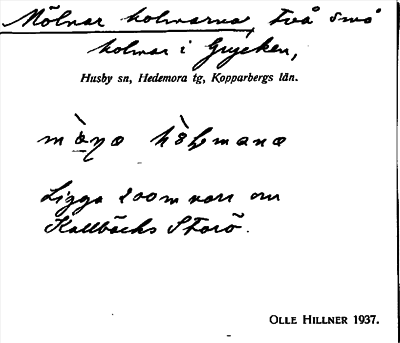 Mölnar holmarna, två små
holmar i Grycken,
Husby sn, Hedemora tg, Kopparbergs län.
Ligga 200 m norr om
Kallbäcks Storö.
OLLE HILLNER 1937.